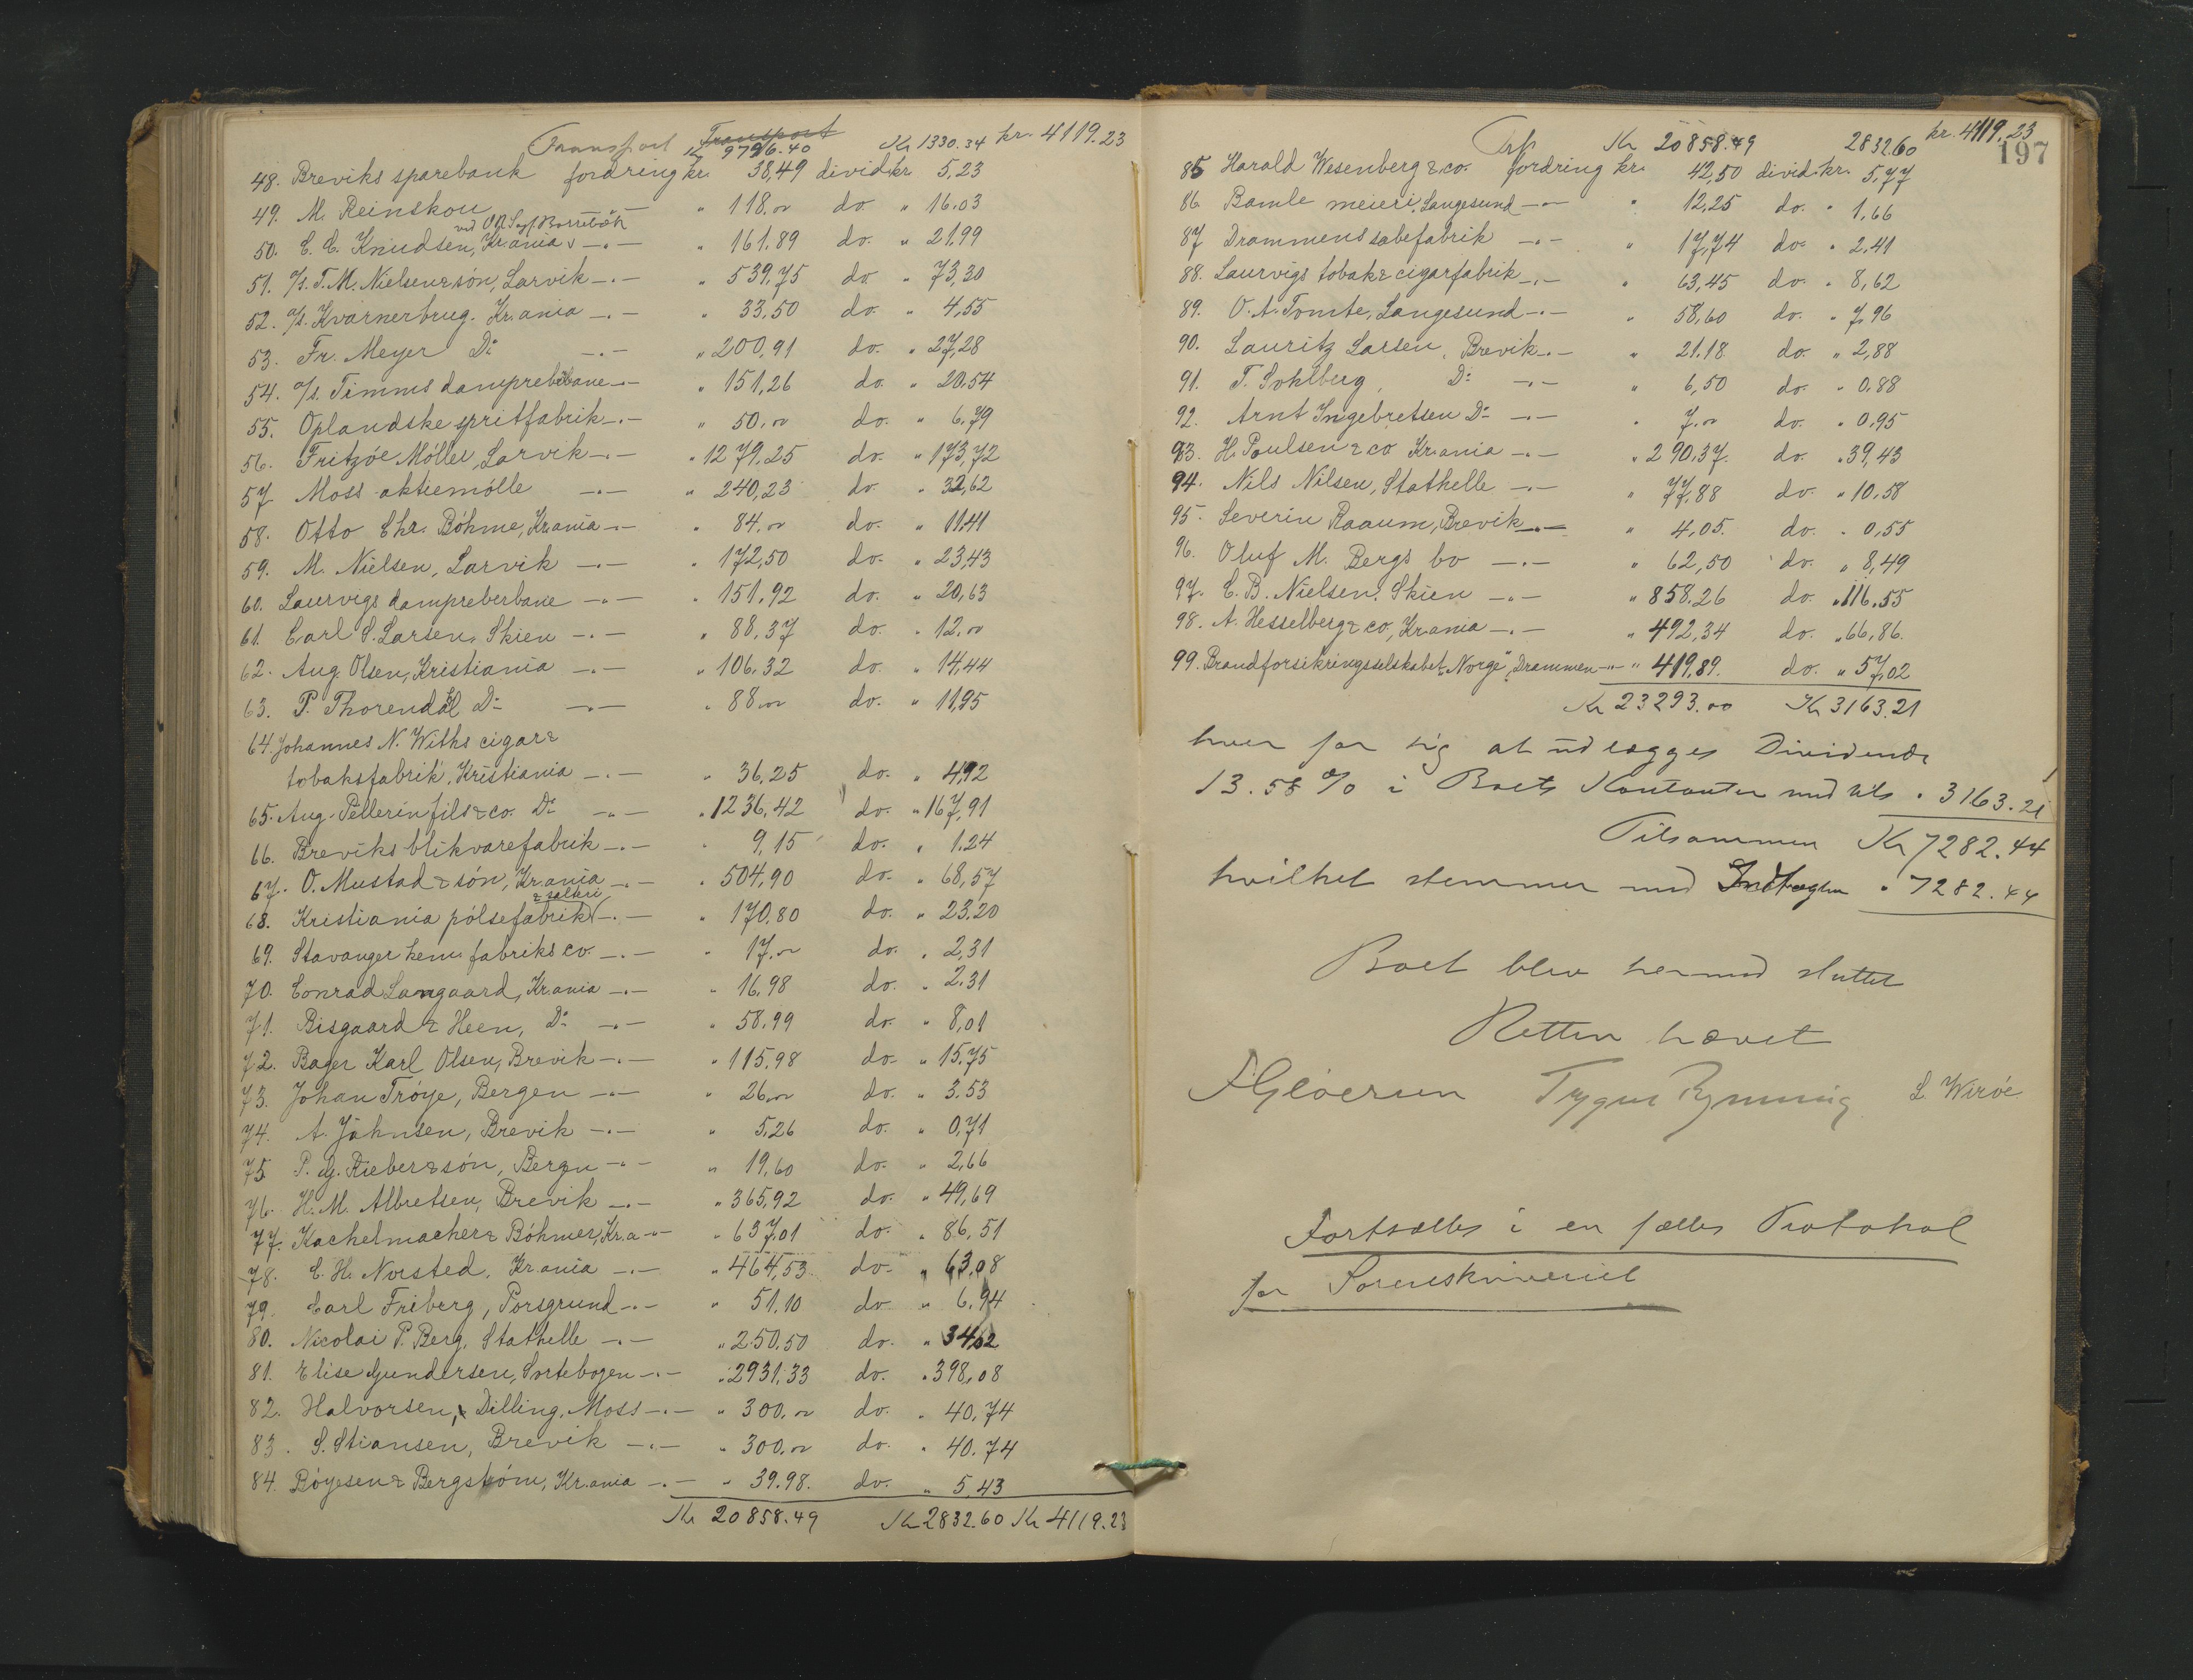 Transport Transport
Kr 9796.40 Kr 1330.34 kr. 4119.23
48. Breviks sparebank fordring kr. 38,49 divid. kr. 5,23
49. M. Reinskou —„— " 118.00 do. " 16.03
ved O.R.Sagf
50. C. C. Knudsen, Kr.ania —„— " 161.89 do. " 21.99
51. A/s. T. M. Nielsen & søn, Larvik —„— " 539,75 do. " 73,30
52. A/s. Kværnerbrug. Kr.ania —„— " 33.50 do. " 4,55
53. Fr. Meyer Do —„— " 200,91 do. " 27,28
54. A/s. Timms dampreberbane —„— " 151,26 do. " 20.54
55. Oplandske spritfabrik —„— " 50,00 do. " 6,79
56. Fritzøe Møller, Larvik —„— " 1279.25 do. " 173,72
57 Moss aktiemølle —„— " 240,23 do. " 32,62
58. Otto Chr. Bøhme, Kr.ania —„— " 84.00 do. " 11.41
59. M. Nielsen, Larvik —„— " 172,50 do. " 23,43
60. Laurvigs dampreberbane —„— " 151.92 do. " 20,63
61. Carl S. Larsen, Skien —„— " 88,37 do. " 12.00
62. Aug. Olsen, Kristiania —„— " 106.32 do. " 14,44
63. P. Thorendal Do —„— " 88.00 do. " 11,95
64. Johannes N. Withs cigar &
tobaksfabrik, Kristiania —„— " 36,25 do. " 4,92
65. Aug. Pellerin fils & co. Do —„— " 1236,42 do. " 167,91
66. Breviks blikvarefabrik —„— " 9,15 do. " 1.24
67. O. Mustad & søn, Kr.ania —„— " 504,90 do. " 68,57
& salteri
68. Kristiania pølsefabrik —„— " 170.80 do. " 23.20
69. Stavanger kem. fabriks co. —„— " 17.00 do. " 2,31
70. Conrad Langaard, Kr.ania —„— " 16,98 do. " 2.31
71. Bisgaard & Heen, Do —„— " 58.99 do. " 8,01
72. Bager Karl Olsen, Brevik —„— " 115.98 do. " 15.75
73. Johan Trøye, Bergen —„— " 26.00 do. " 3.53
74. A. Jahnsen, Brevik —„— " 5,26 do. " 0,71
75. P. G. Rieber & søn, Bergen —„— " 19,60 do. " 2,66
76. H. M. Albretsen, Brevik —„— " 365,92 do. " 49,69
77. Kachelmacher & Bøhmer, Kr.a —„— " 637,01 do. " 86,51
78. C. H. Norsted, Kr.ania —„— " 464,53 do. " 63,08
79. Carl Friberg, Porsgrund —„— " 51.10 do. " 6,94
80. Nicolai P. Berg, Stathelle —„— " 250.50 do. " 34,02
81. Elise Gundersen, Sortebogen —„— " 2931,33 do. " 398,08
82. Halvorsen, Dilling, Moss —„— " 300.00 do. " 40,74
83. S. Stiansen, Brevik —„— " 300.00 do. " 40.74
84. Bøyesen & Bergstrøm, Kr.ania —„— " 39.98. do. " 5,43
Kr 20858.49 Kr 2832.60 Kr 4119.23
Trsp Kr 20858.49 2832.60 kr. 4119.23
197
85 Harald Wesenberg & co. fordring kr. 42,50 divid. kr. 5,77
86. Bamle meieri, Langesund —„— " 12,25 do. " 1,66
87 Drammens sæbefabrik —„— " 17,74 do. " 2,41
88. Laurvigs tobak & cigarfabrik —„— " 63,45 do. " 8,62
89. O. A. Tomte, Langesund —„— " 58,60 do. " 7,96
90. Lauritz Larsen, Brevik —„— " 21.18 do. " 2,88
91. T. Sohlberg, Do —„— " 6,50 do. " 0.88
92. Arnt Ingebretsen Do —„— " 7.00 do. " 0,95
93. H. Poulsen & co Kr.ania —„— " 290.37. do. " 39,43
94. Nils Nilsen, Stathelle —„— " 77,88 do. " 10.58
95. Severin Raaum, Brevik —„— " 4,05. do. " 0,55
96. Oluf M. Bergs bo —„— " 62,50 do. " 8,49
97. C. B. Nielsen, Skien —„— " 858.26 do. " 116.55
98. A. Hesselberg & co, Kr.ania —„— " 492,34 do. " 66,86.
99. Brandforsikringsselskabet „Norge", Drammen —„— " 419,89. do. " 57,02
Kr 23293.00 Kr 3163.21
hver for sig at udlægges Dividende
13.58 % i Boets Kontanter med tils. " 3163.21
Tilsammen Kr 7282.44
hvilket stemmer med Indtægten " 7282.44
Boet blev hermed sluttet
Retten hævet
Trygve Rynning L Wirøe
Fortsættes i en fælles Protokol
for Sorenskriveriet